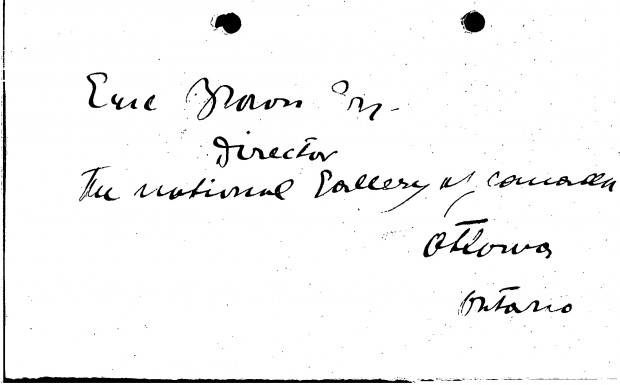 Eric Brown Esq.
Director
The National Gallery of Canada
Ottawa
Ontario